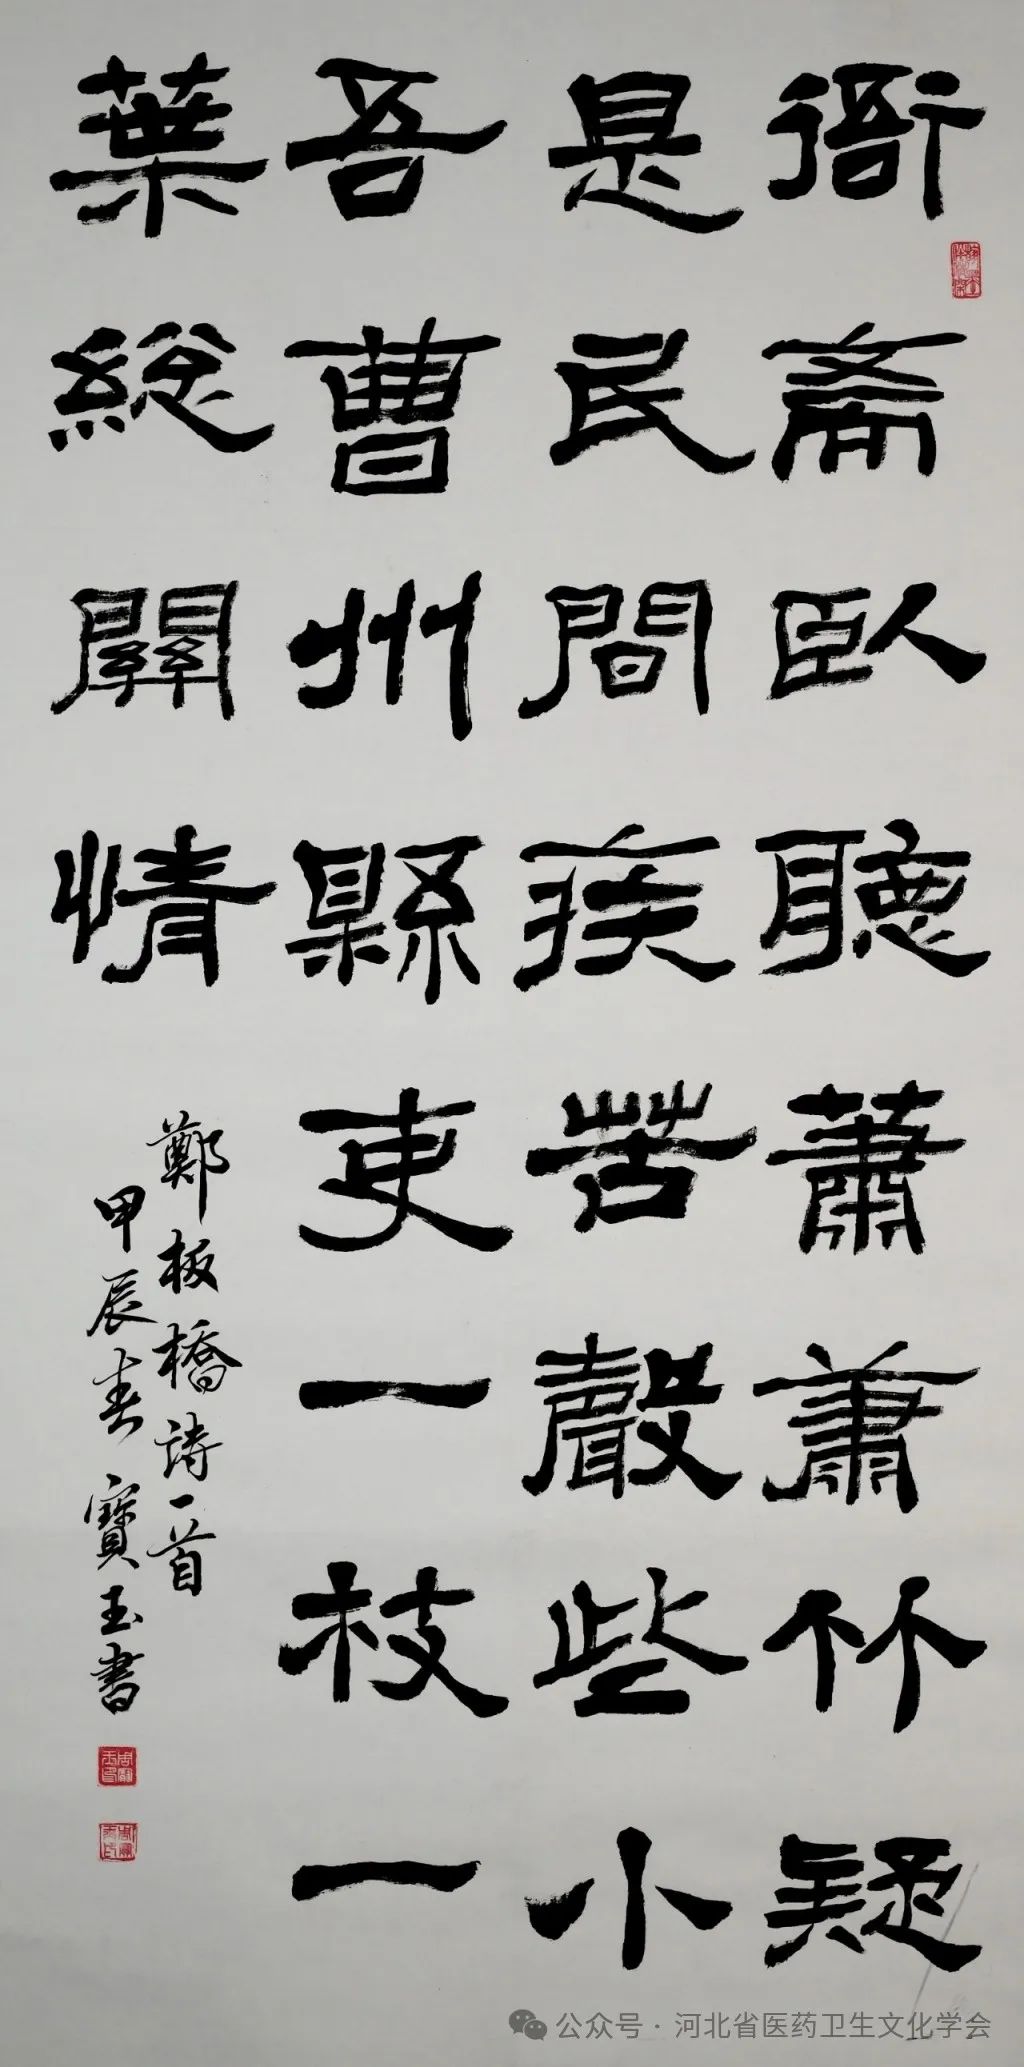 衙齋臥聽蕭蕭竹疑
是民間疾苦聲些小
吾曹州縣吏一枝一
葉総關情
鄭板橋詩一首
甲辰春寶玉書
公众号·河北省医药卫生文化学会